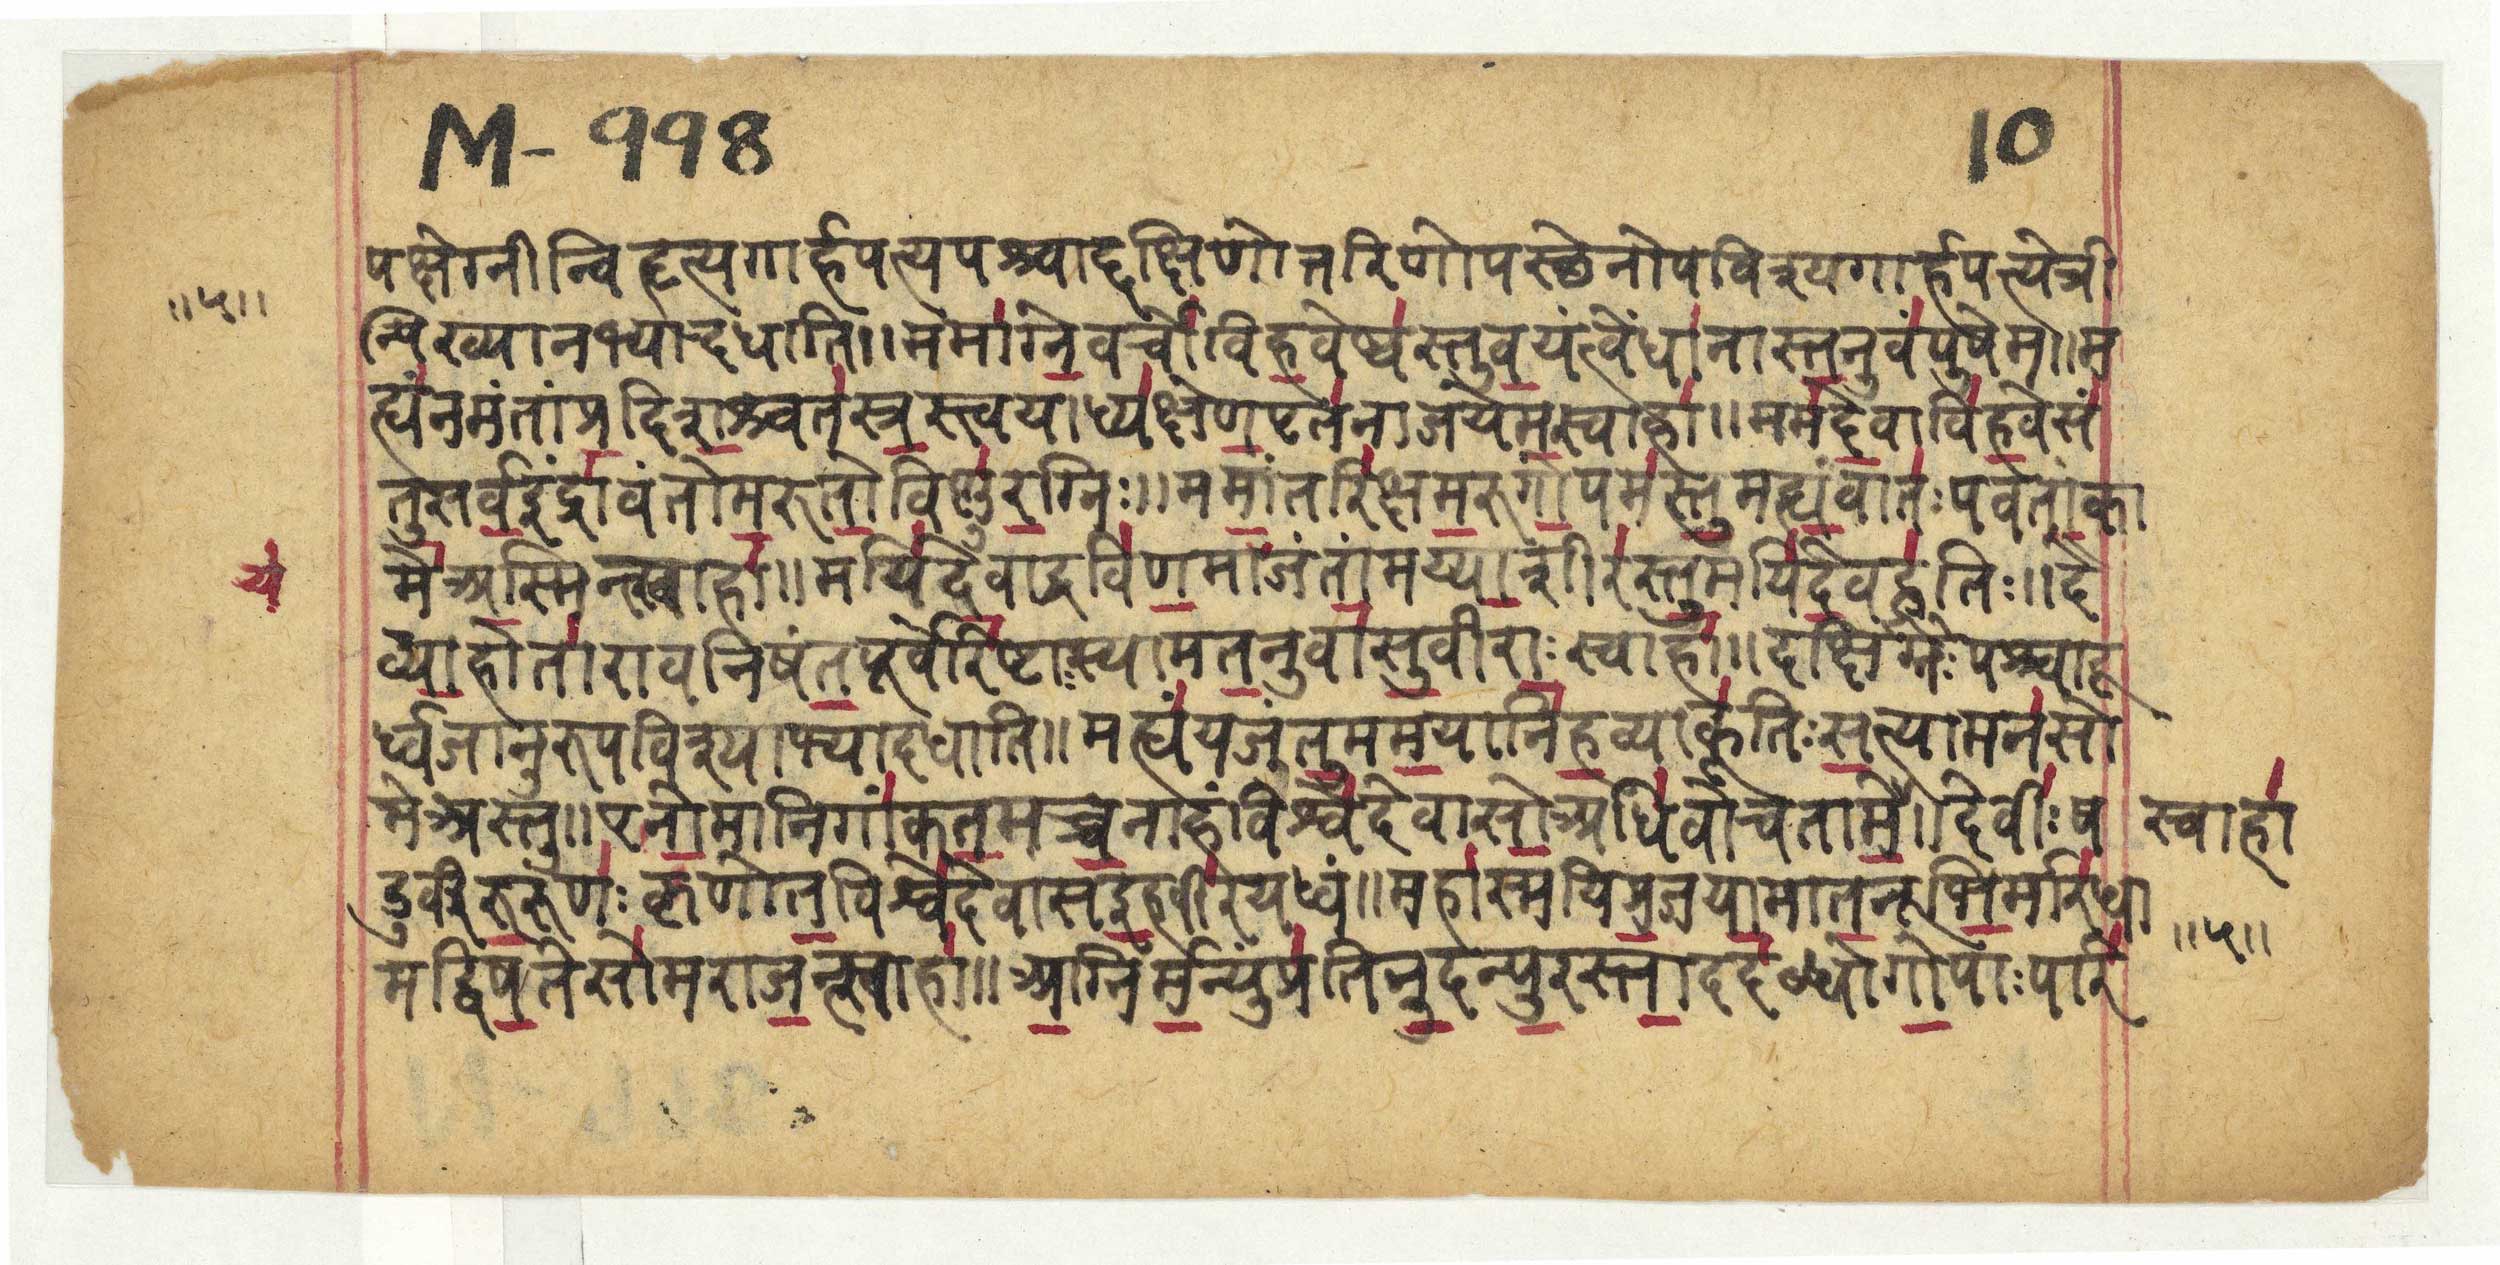 M-998 10
पक्षेग्नीन्विहृत्यगार्हपत्यपश्चाद्दक्षिणोत्तरिणोपस्छेनोपविश्यगार्हपत्येत्री
॥५॥
न्पिख्यानभ्यादधाति॥ममाग्नेवर्चोविहवेष्वस्तुवयंत्वेंधानास्तनुवंपुषेम॥म
ह्यंनमंतांप्रदिशश्चतस्रस्त्वयाध्यक्षेणपृतनाजयेमस्वाहा॥ममदेवाविहवेसं
तुसर्वइंद्रावंतोमरुतोविष्णुरग्निः॥ममांतरिक्षमरुगोपमस्तुमह्यंवातःपवतांका
ये
मेअस्मिन्त्स्वाहा॥मयिदेवाद्रविणमाजंतांमय्याशीरस्तुमयिदेवहूतिः॥दै
व्याहोतारावनिषंतपूर्वेरिष्टाःस्यामतनुवासुवीराःस्वाहा॥दक्षिंग्नेःपश्चादू
र्ध्वजानुरुपविश्याभ्यादधाति॥मह्यंयजंतुममयानिहव्याकूतिःसत्यामनसो
मेअस्तु॥एनोमानिगांकतमच्चनाहंविश्वेदेवासोअधिवोचतामे॥देवीःष स्वाहा
डुर्वीरुरुणःकृणोतविश्वेदेवासइहवीरयध्वं॥महास्मयिप्रजयामातनूभिर्मारिधा
॥५॥
मद्विषतेसोमराजन्त्स्वाहा॥अग्निर्मन्युंप्रतिनुदन्पुरस्तादब्धोगोपाःपरि